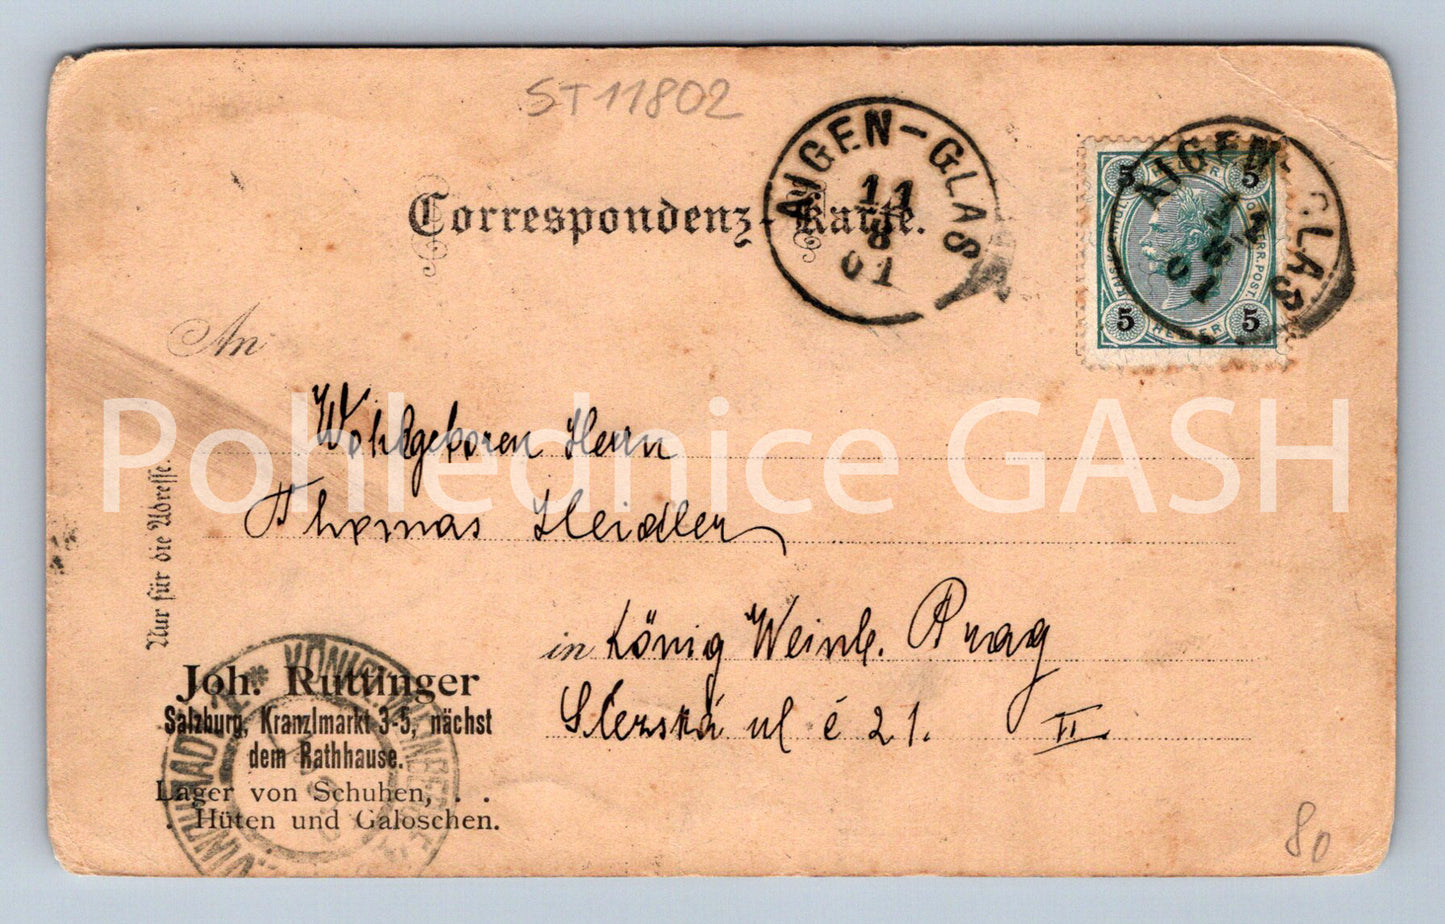 ST 11802
AIGEN-GLAS
11
8
01
AIGEN-GLAS
11
8
01
5 HELLER 5
5 HELLER 5
Correspondenz-Karte.
An
Wohlgeboren Herrn
Thomas Heidler
in König Weinb. Prag
č 21. II.
Nur für die Adresse.
Joh. Ruttinger
Salzburg, Kranzlmarkt 3-5, nächst
dem Rathhause.
Lager von Schuhen, . .
. Hüten und Galoschen.
80
Pohlednice GASH